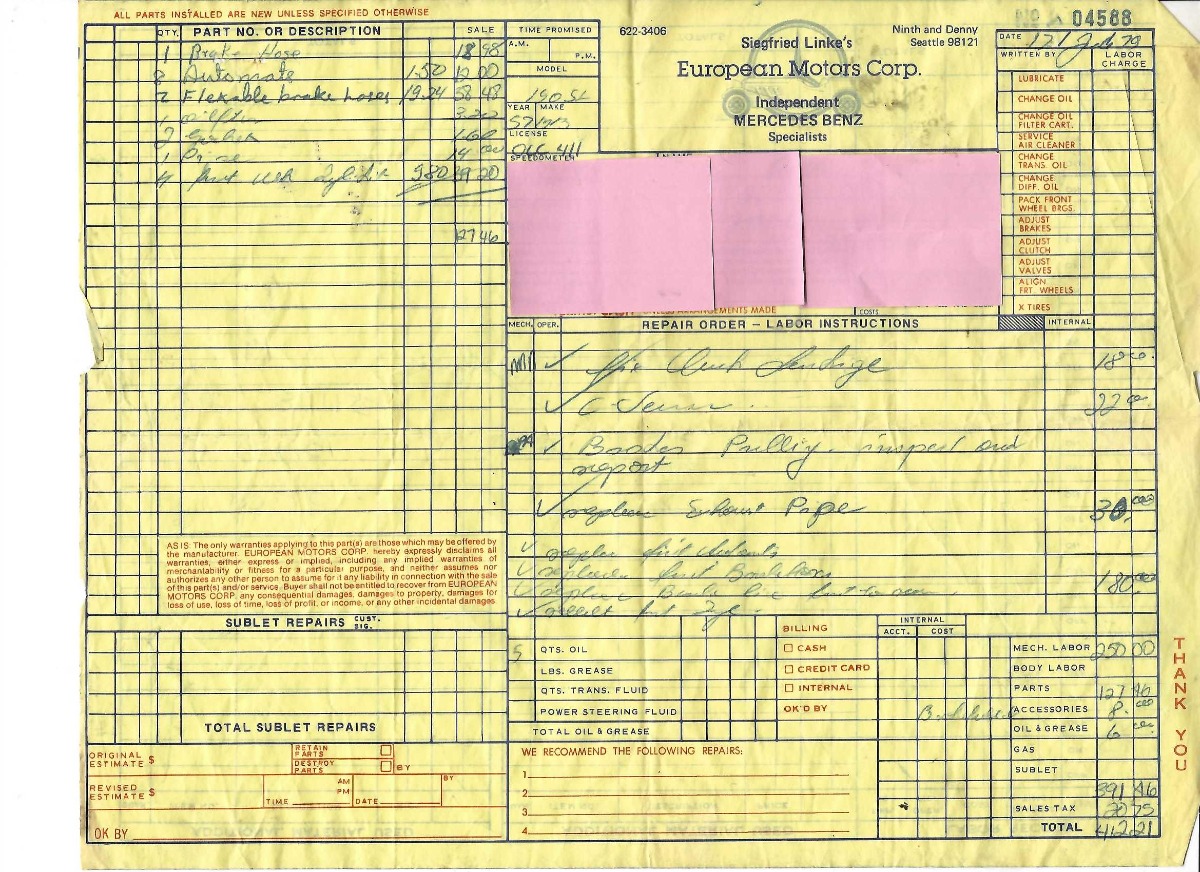 ALL PARTS INSTALLED ARE NEW UNLESS SPECIFIED OTHERWISE
QTY. PART NO. OR DESCRIPTION SALE
1 Brake Hose 18 98
8 Automate 1.50 12 00
2 Flexable brake hoses 19.24 58 48
1 3 20
2 1 60
1 14 00
4 9.80 39 20
127 46
AS IS. The only warranties applying to this part(s) are those which may be offered by
the manufacturer. EUROPEAN MOTORS CORP. hereby expressly disclaims all
warranties, either express or implied, including any implied warranties of
merchantability or fitness for a particular purpose, and neither assumes nor
authorizes any other person to assume for it any liability in connection with the sale
of this part(s) and/or service. Buyer shall not be entitled to recover from EUROPEAN
MOTORS CORP. any consequential damages, damages to property, damages for
loss of use, loss of time, loss of profit, or income, or any other incidental damages.
SUBLET REPAIRS CUST. SIG.
TOTAL SUBLET REPAIRS
ORIGINAL ESTIMATE $
RETAIN PARTS
DESTROY PARTS BY
REVISED ESTIMATE $
AM
PM
TIME DATE
BY
OK BY
TIME PROMISED
A.M.
P.M.
MODEL
190SL
YEAR MAKE
57
LICENSE
411
SPEEDOMETER
622-3406
Siegfried Linke's
European Motors Corp.
Independent
MERCEDES BENZ
Specialists
Ninth and Denny
Seattle 98121
No 04588
DATE
WRITTEN BY
LABOR CHARGE
LUBRICATE
CHANGE OIL
CHANGE OIL
FILTER CART.
SERVICE
AIR CLEANER
CHANGE
TRANS. OIL
CHANGE
DIFF. OIL
PACK FRONT
WHEEL BRGS.
ADJUST
BRAKES
ADJUST
CLUTCH
ADJUST
VALVES
ALIGN
FRT. WHEELS
X TIRES
UNLESS ARRANGEMENTS MADE
COSTS
MECH. OPER. REPAIR ORDER – LABOR INSTRUCTIONS INTERNAL
18 00
22 00
Brakes Pulling. inspect and
report
Exhaust Pipe 30.00
180.00
5 QTS. OIL
LBS. GREASE
QTS. TRANS. FLUID
POWER STEERING FLUID
TOTAL OIL & GREASE
BILLING
CASH
CREDIT CARD
INTERNAL
OK'D BY
INTERNAL
ACCT. COST
MECH. LABOR 250 00
BODY LABOR
PARTS 127 46
ACCESSORIES 8.00
OIL & GREASE 6 00
GAS
SUBLET
391 46
SALES TAX 20 75
TOTAL 412.21
WE RECOMMEND THE FOLLOWING REPAIRS:
1
2
3
4
THANK YOU